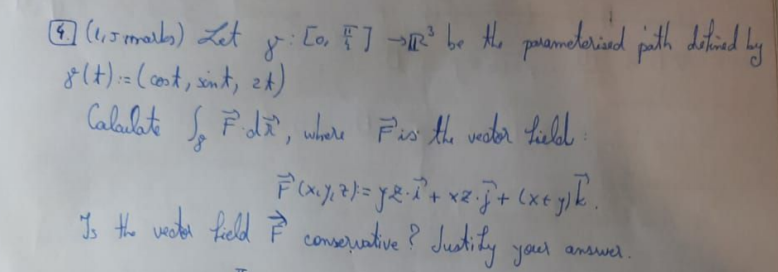 4. (1,5 marks) Let γ: [0, π/4] → ℝ³ be the parameterised path defined by
γ(t) := (cos t, sin t, 2t)
Calculate ∫_γ F⃗·dx⃗, where F⃗ is the vector field:
F⃗(x,y,z) := yz·i⃗ + xz·j⃗ + (x+y)k⃗.
Is the vector field F⃗ conservative? Justify your answer.